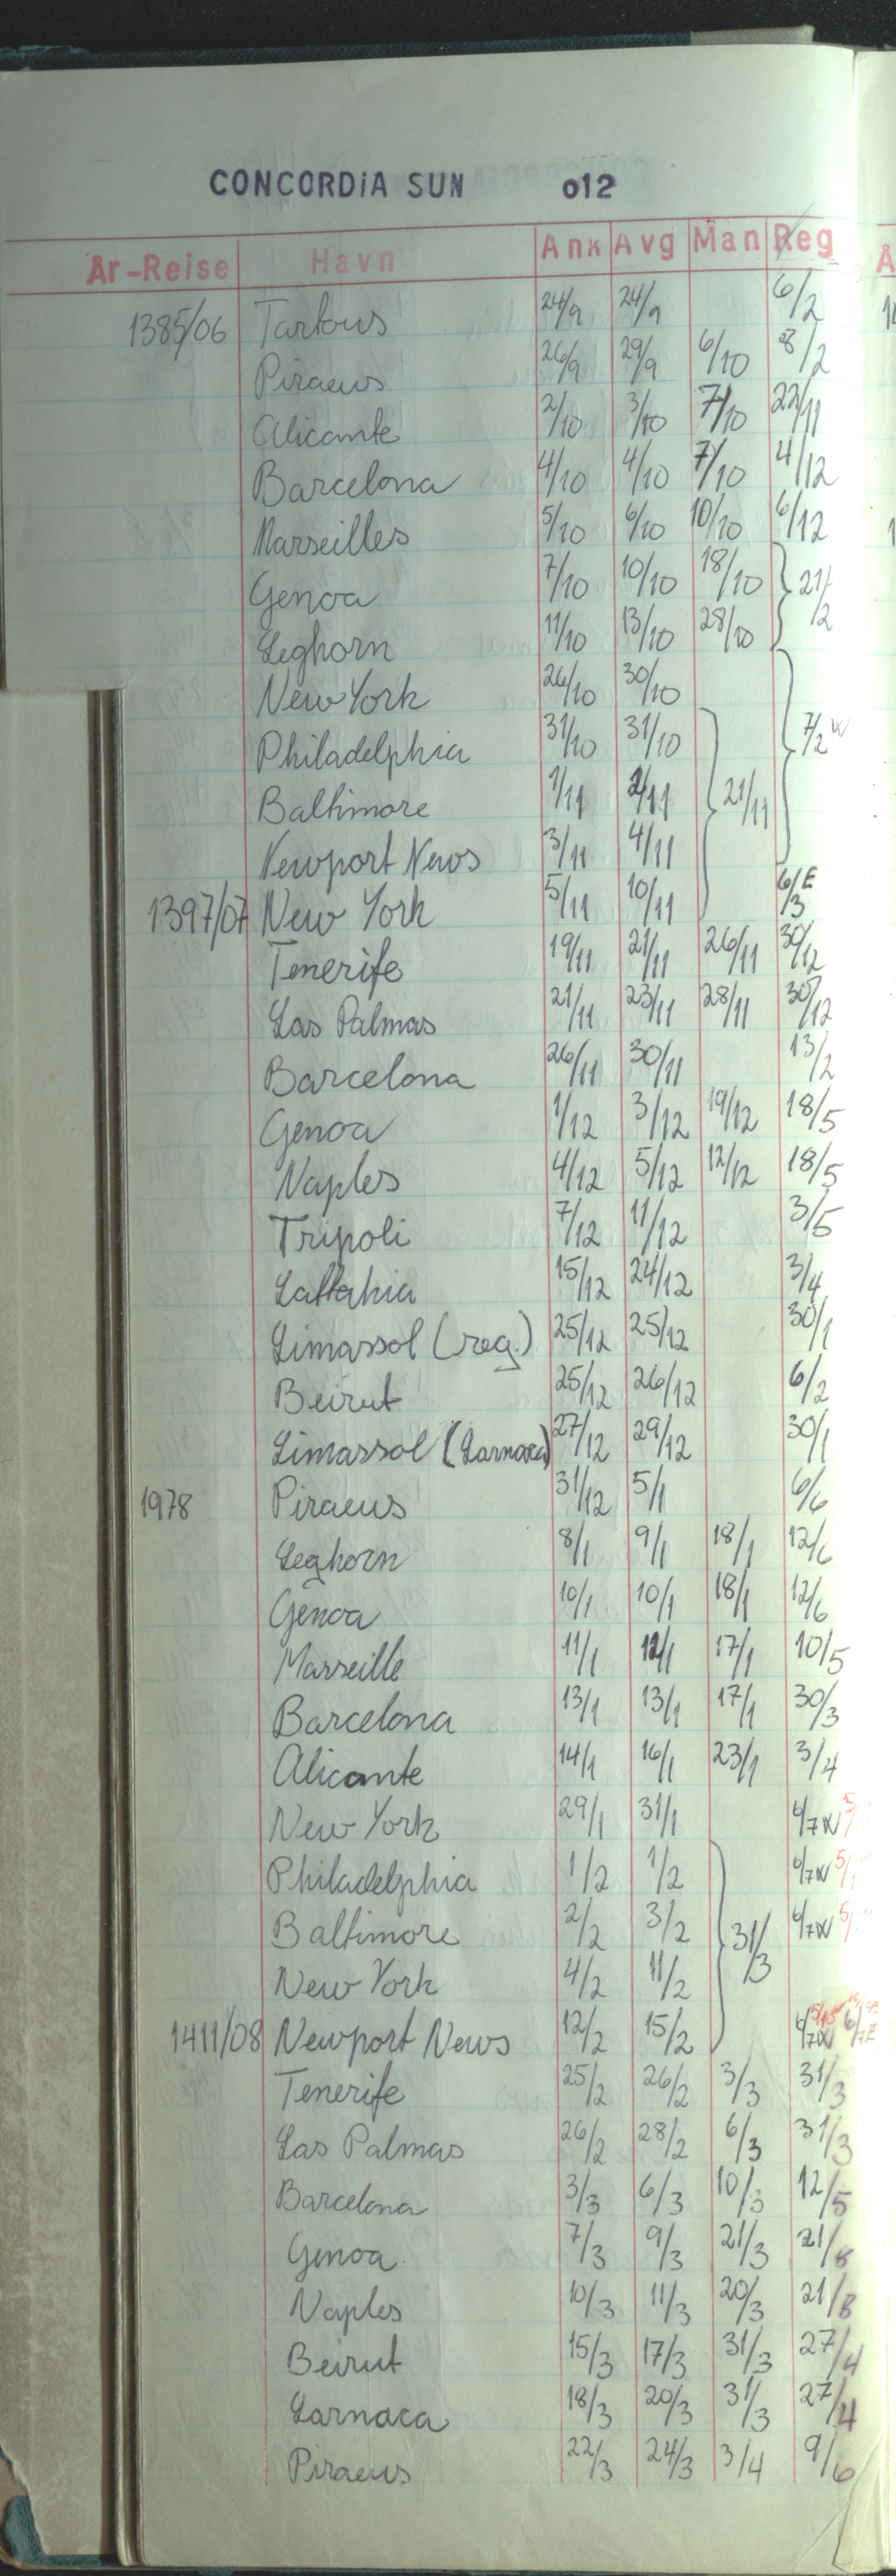 CONCORDIA SUN 012
År-Reise Havn Ank Avg Man Reg
1385/06 Tartous 24/9 24/9 24/9 6/2
Piraeus 26/9 29/9 6/10 8/2
Alicante 2/10 3/10 7/10 22/11
Barcelona 4/10 4/10 7/10 4/12
Marseilles 5/10 6/10 10/10 6/12
Genoa 7/10 10/10 18/10 21/2
Leghorn 11/10 13/10 28/10
New York 26/10 30/10
Philadelphia 31/10 31/10 7/2 W
Baltimore 1/11 2/11 21/11
Newport News 3/11 4/11
1397/07 New York 5/11 10/11 6/3 E
Tenerife 19/11 21/11 26/11 30/12
Las Palmas 21/11 23/11 28/11 30/12
Barcelona 26/11 30/11 13/2
Genoa 1/12 3/12 19/12 18/5
Naples 4/12 5/12 12/12 18/5
Tripoli 7/12 11/12 3/5
Lattakia 15/12 24/12 3/4
Limassol (reg.) 25/12 25/12 30/1
Beirut 25/12 26/12 6/2
Limassol (Larnaca) 27/12 29/12 30/1
1978 Piraeus 31/12 5/1 6/6
Leghorn 8/1 9/1 18/1 12/6
Genoa 10/1 10/1 18/1 12/6
Marseille 11/1 12/1 17/1 10/5
Barcelona 13/1 13/1 17/1 30/3
Alicante 14/1 16/1 23/1 3/4
New York 29/1 31/1 6/7 W
Philadelphia 1/2 1/2 6/7 W
Baltimore 2/2 3/2 31/3 6/7 W
New York 4/2 11/2
1411/08 Newport News 12/2 15/2 6/7 W 6/7 E
Tenerife 25/2 26/2 3/3 31/3
Las Palmas 26/2 28/2 6/3 31/3
Barcelona 3/3 6/3 10/3 12/5
Genoa 7/3 9/3 21/3 21/8
Naples 10/3 11/3 20/3 21/8
Beirut 15/3 17/3 31/3 27/4
Larnaca 18/3 20/3 31/3 27/4
Piraeus 22/3 24/3 3/4 9/6